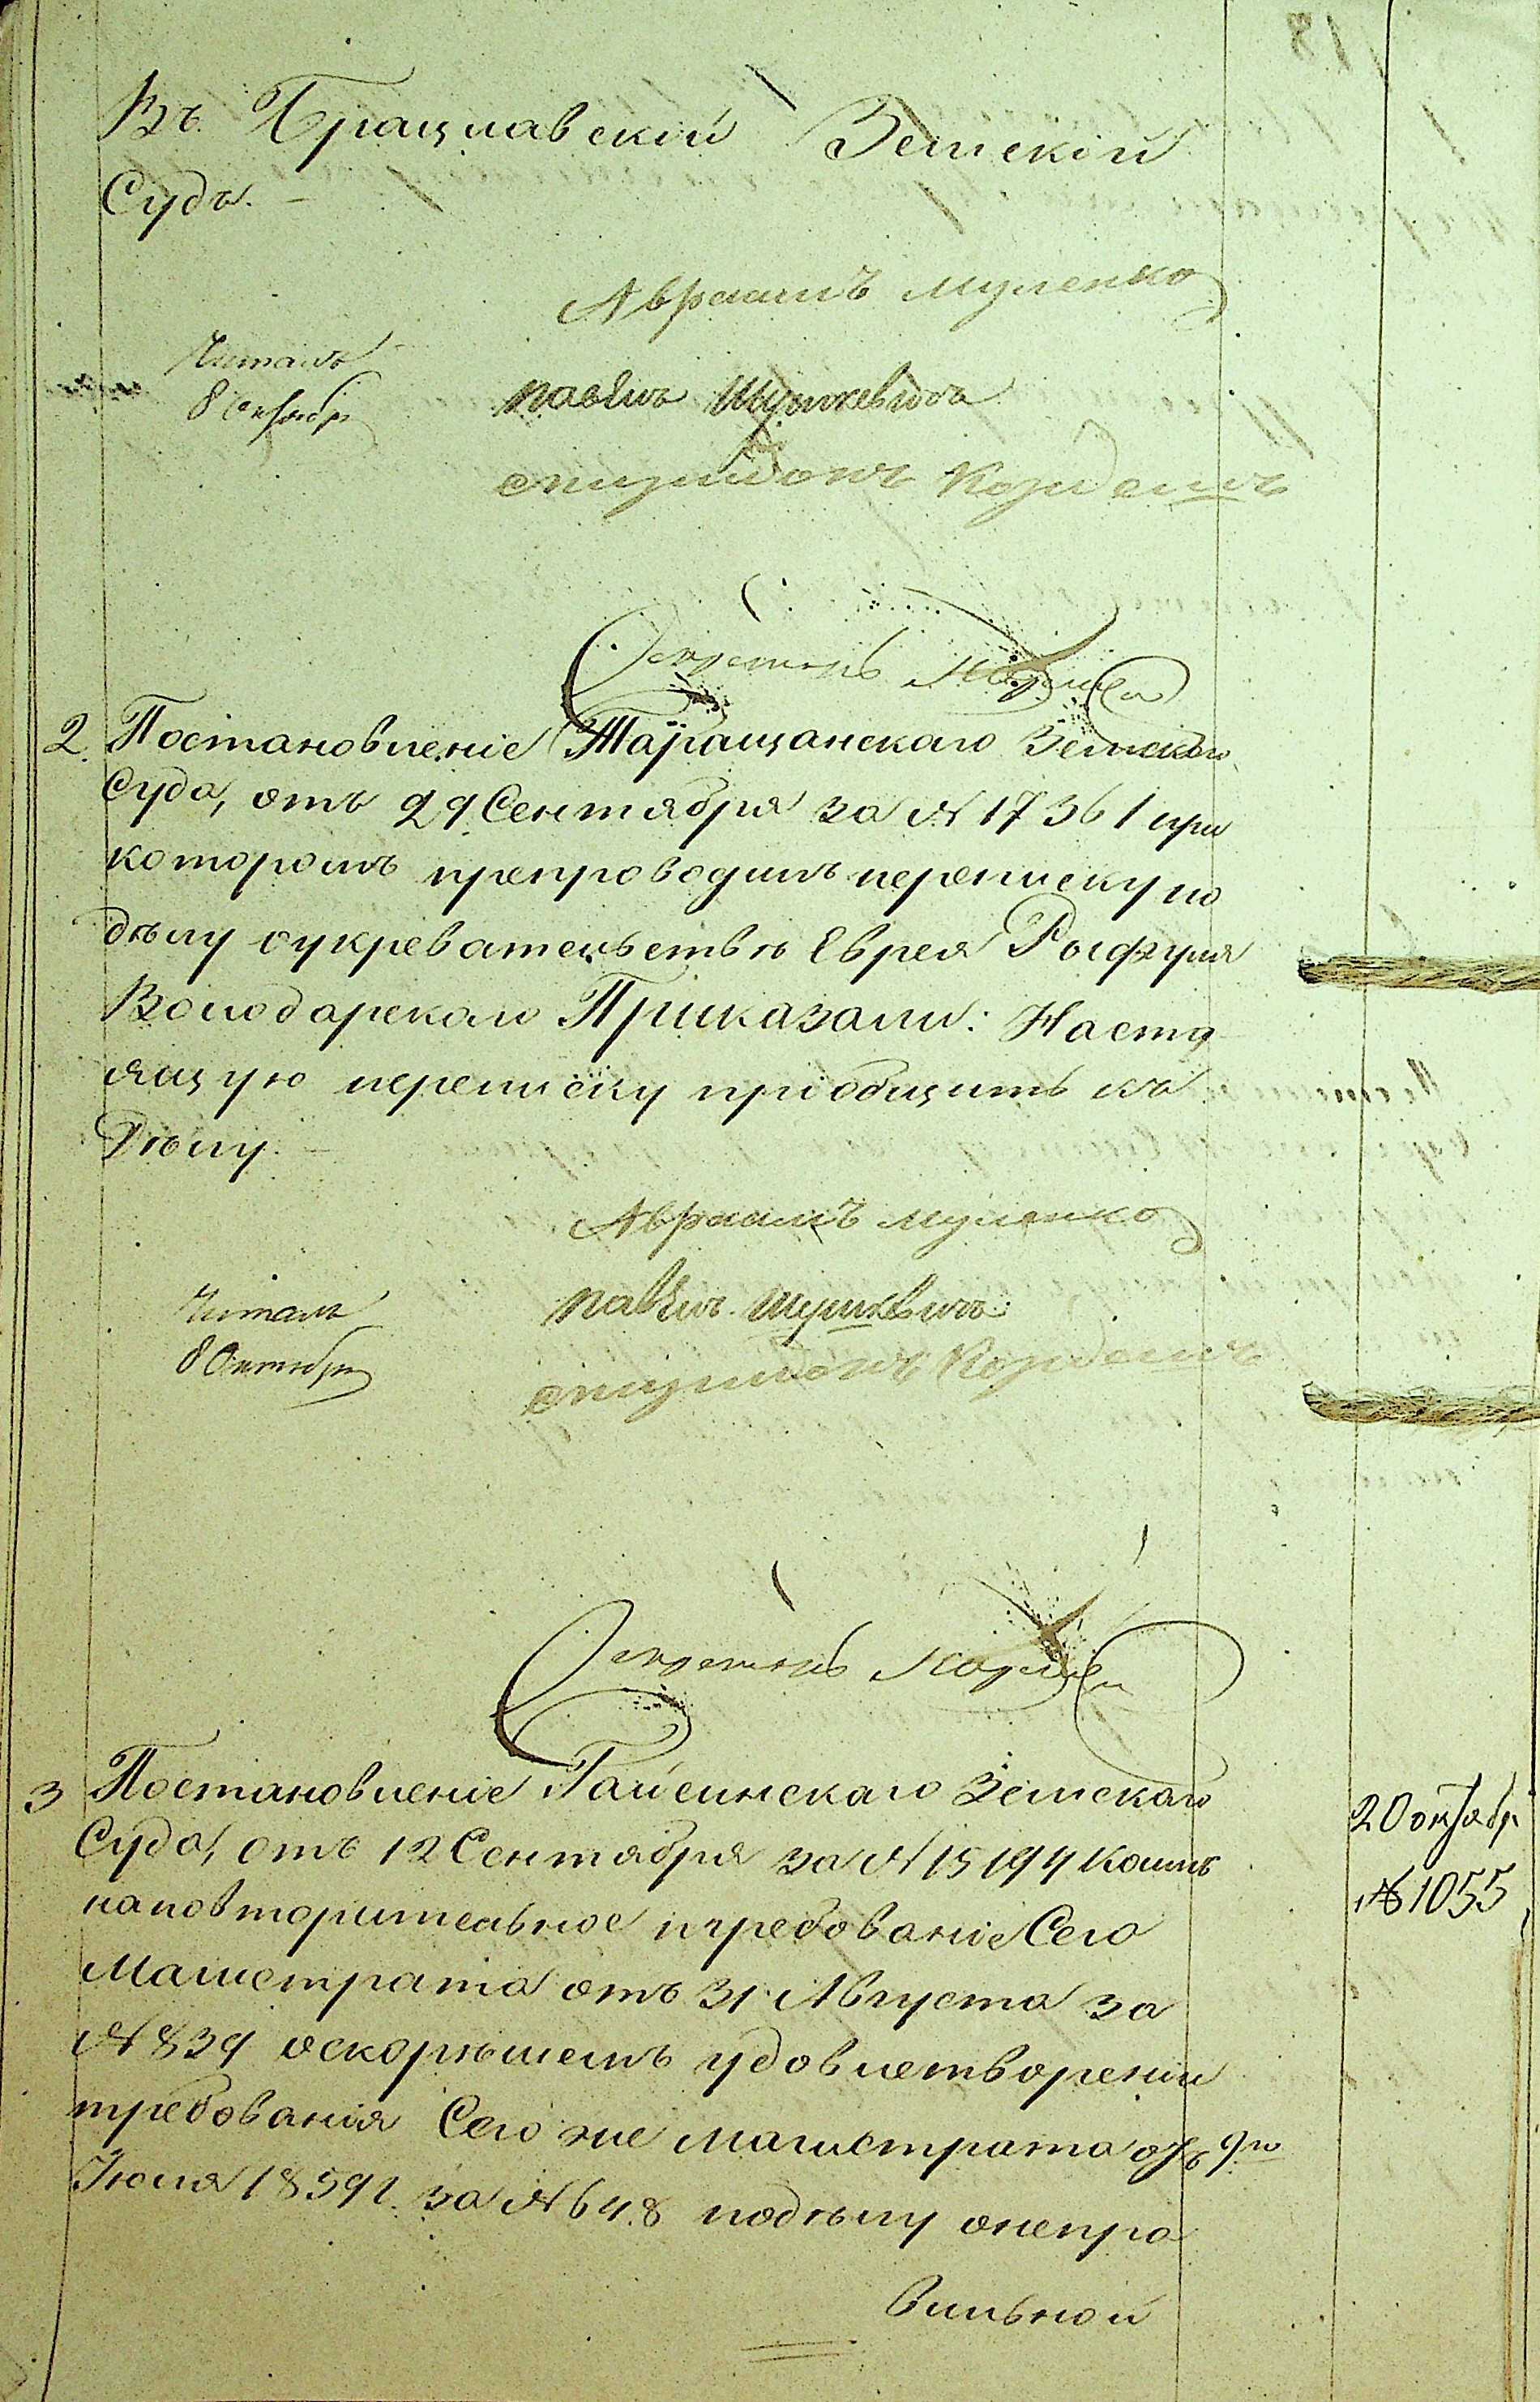 Въ Брацлавскій Земскій
Судъ. –
Авраамъ Муленко
Читалъ
8 Октябр
Павелъ Шушкевичъ
Секретарь
2. Постановленіе Таращанскаго Земскаго
Суда, отъ 29 Сентября за № 17361 при
которомъ препроводилъ переписку по
дѣлу оукревательствѣ Еврея
Володарскаго Приказали: Насто
ящую переписку пріобщить къ
Дѣлу. –
Авраамъ Муленко
Читалъ
8 Октября
Павелъ Шушкевичъ
Секретарь
3 Постановленіе Гайсинскаго Земскаго
Суда, отъ 12 Сентября за № 15194 коимъ
наповторительное требованіе Сего
Магистрата отъ 31 Августа за
№ 839 оскорѣшемъ удовлетвореніи
требованія Сего же магистрата отъ 9го
Іюля 1859 г. за № 648 подѣлу онепра
вильной
20 октябр
№ 1055